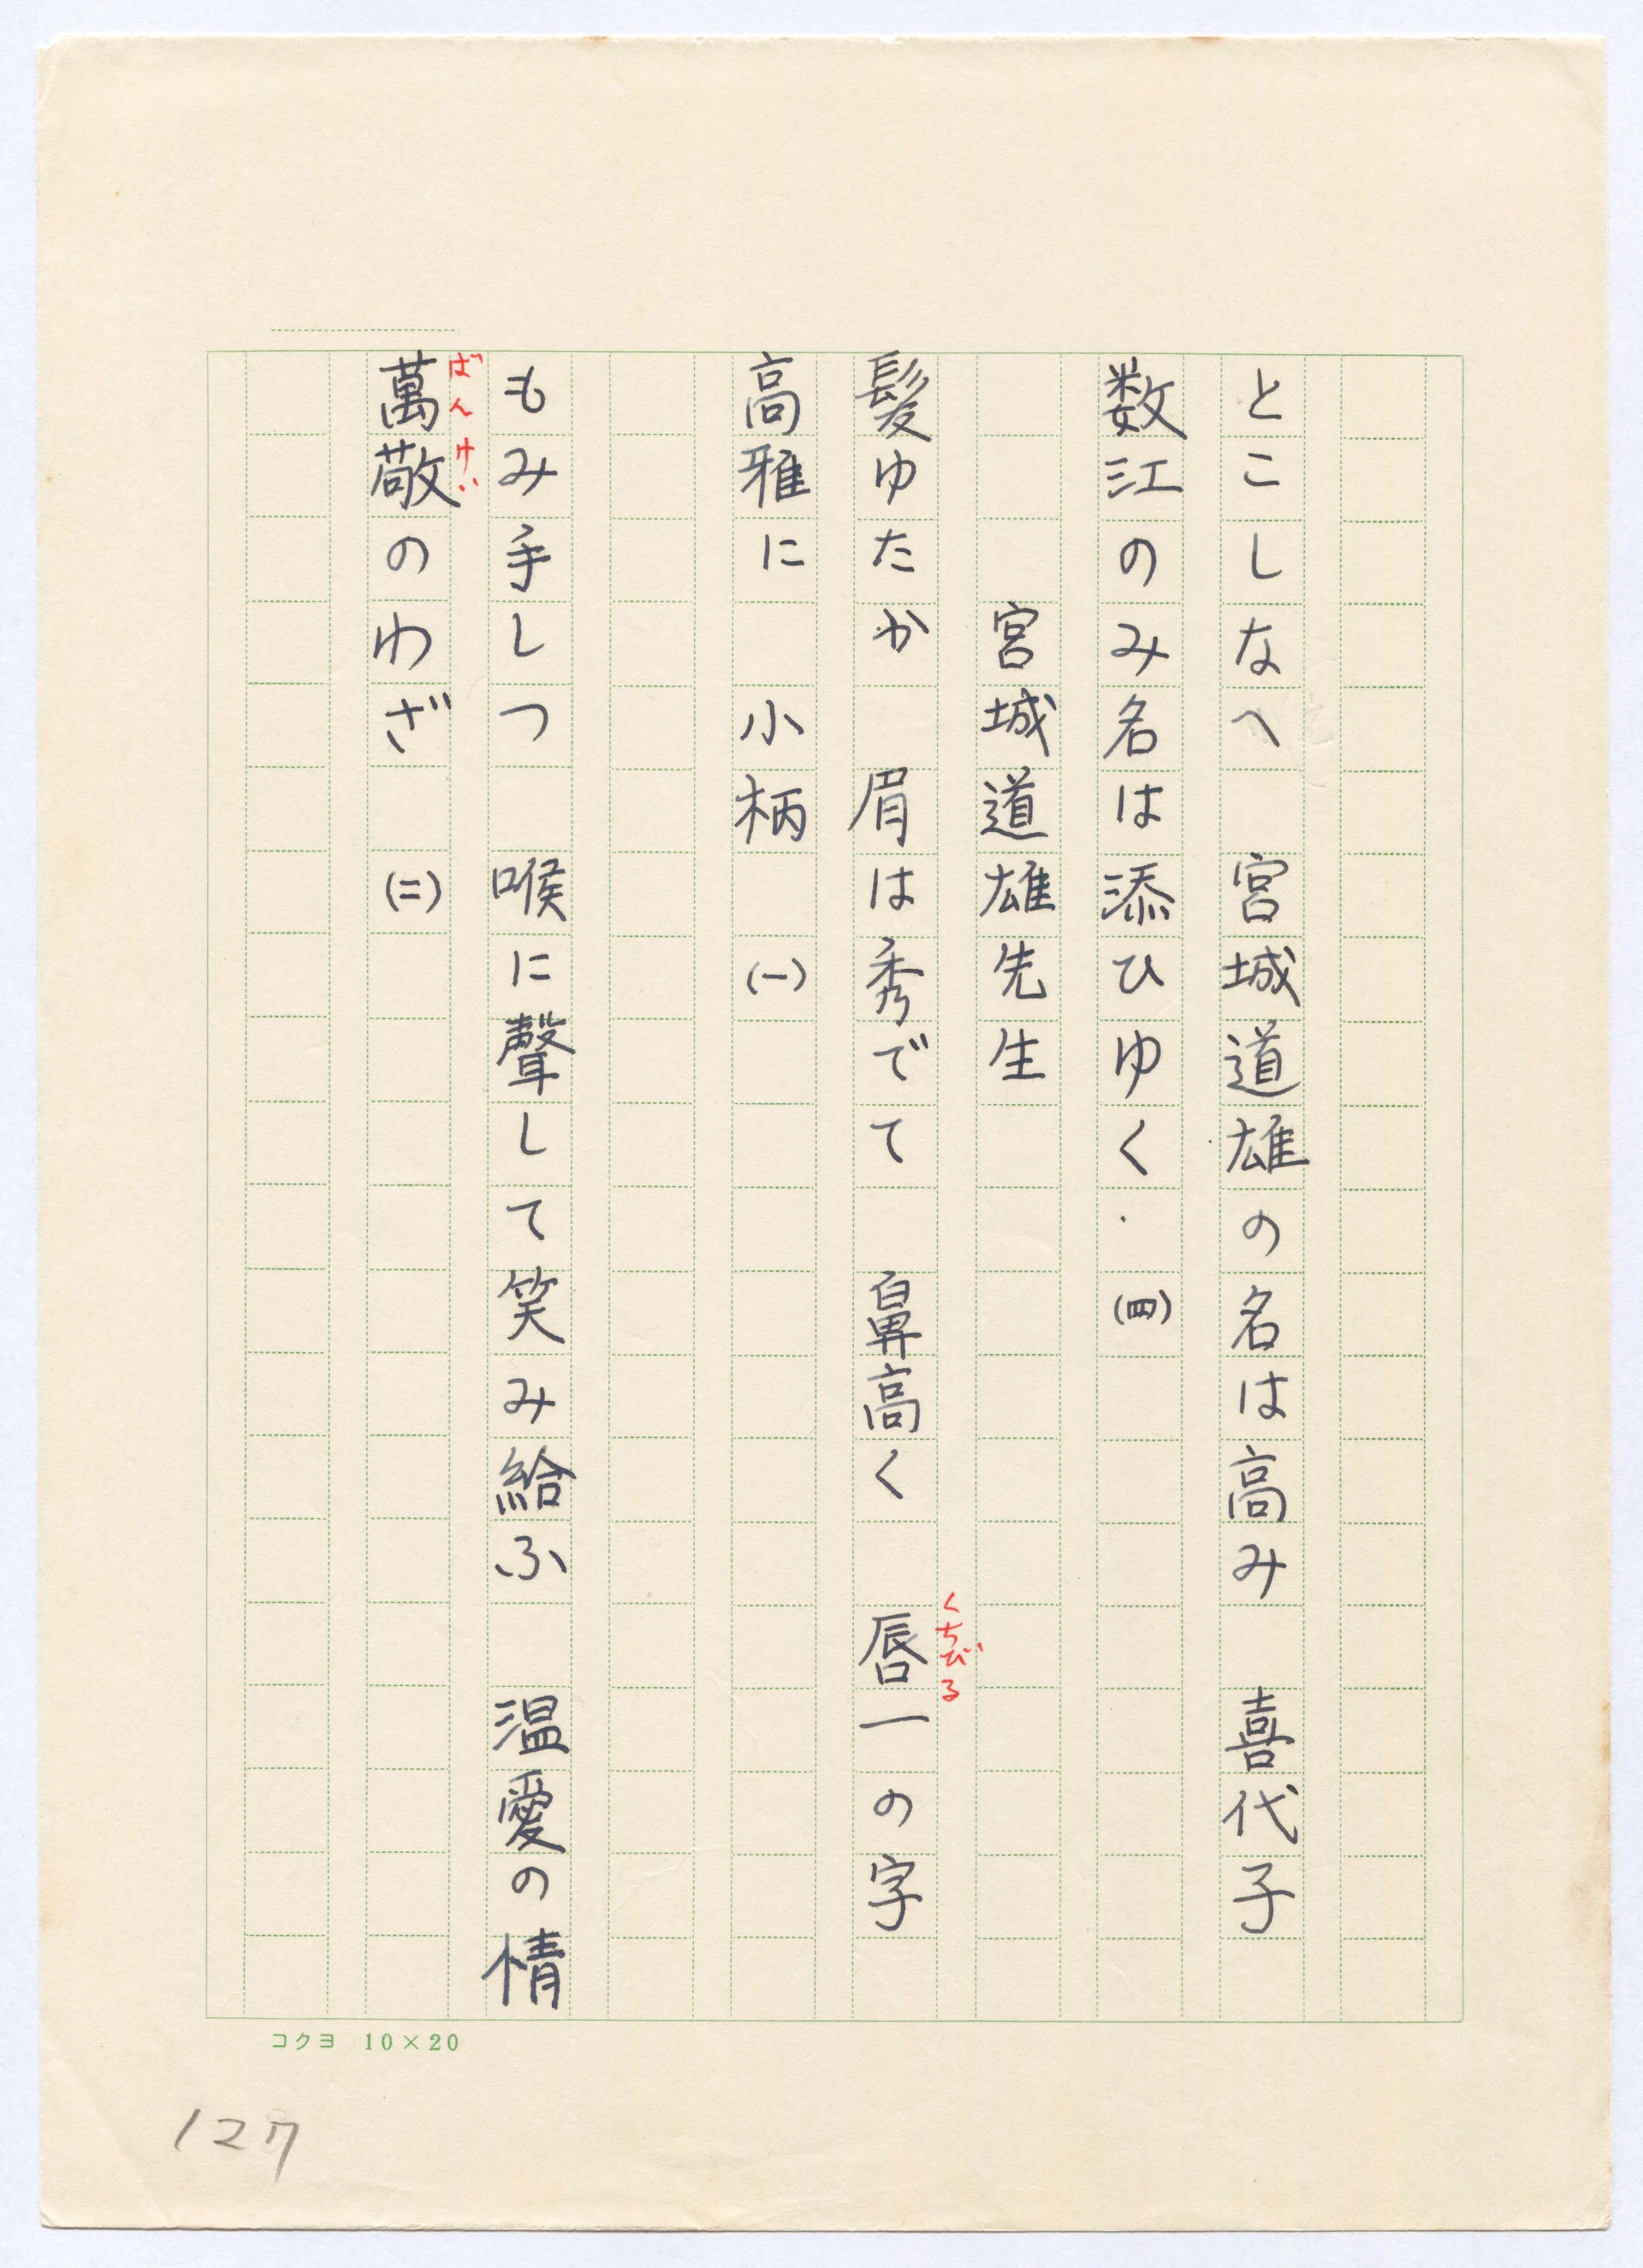 とこしなへ　宮城道雄の名は高み　喜代子
数江のみ名は添ひゆく．（四）
宮城道雄先生
髪ゆたか　眉は秀でて　鼻高く　唇一の字
くちびる
高雅に　小柄　（一）
もみ手しつ　喉に聲して笑み給ふ　温愛の情
萬敬のわざ　（二）
ばんけい
コクヨ 10×20
127